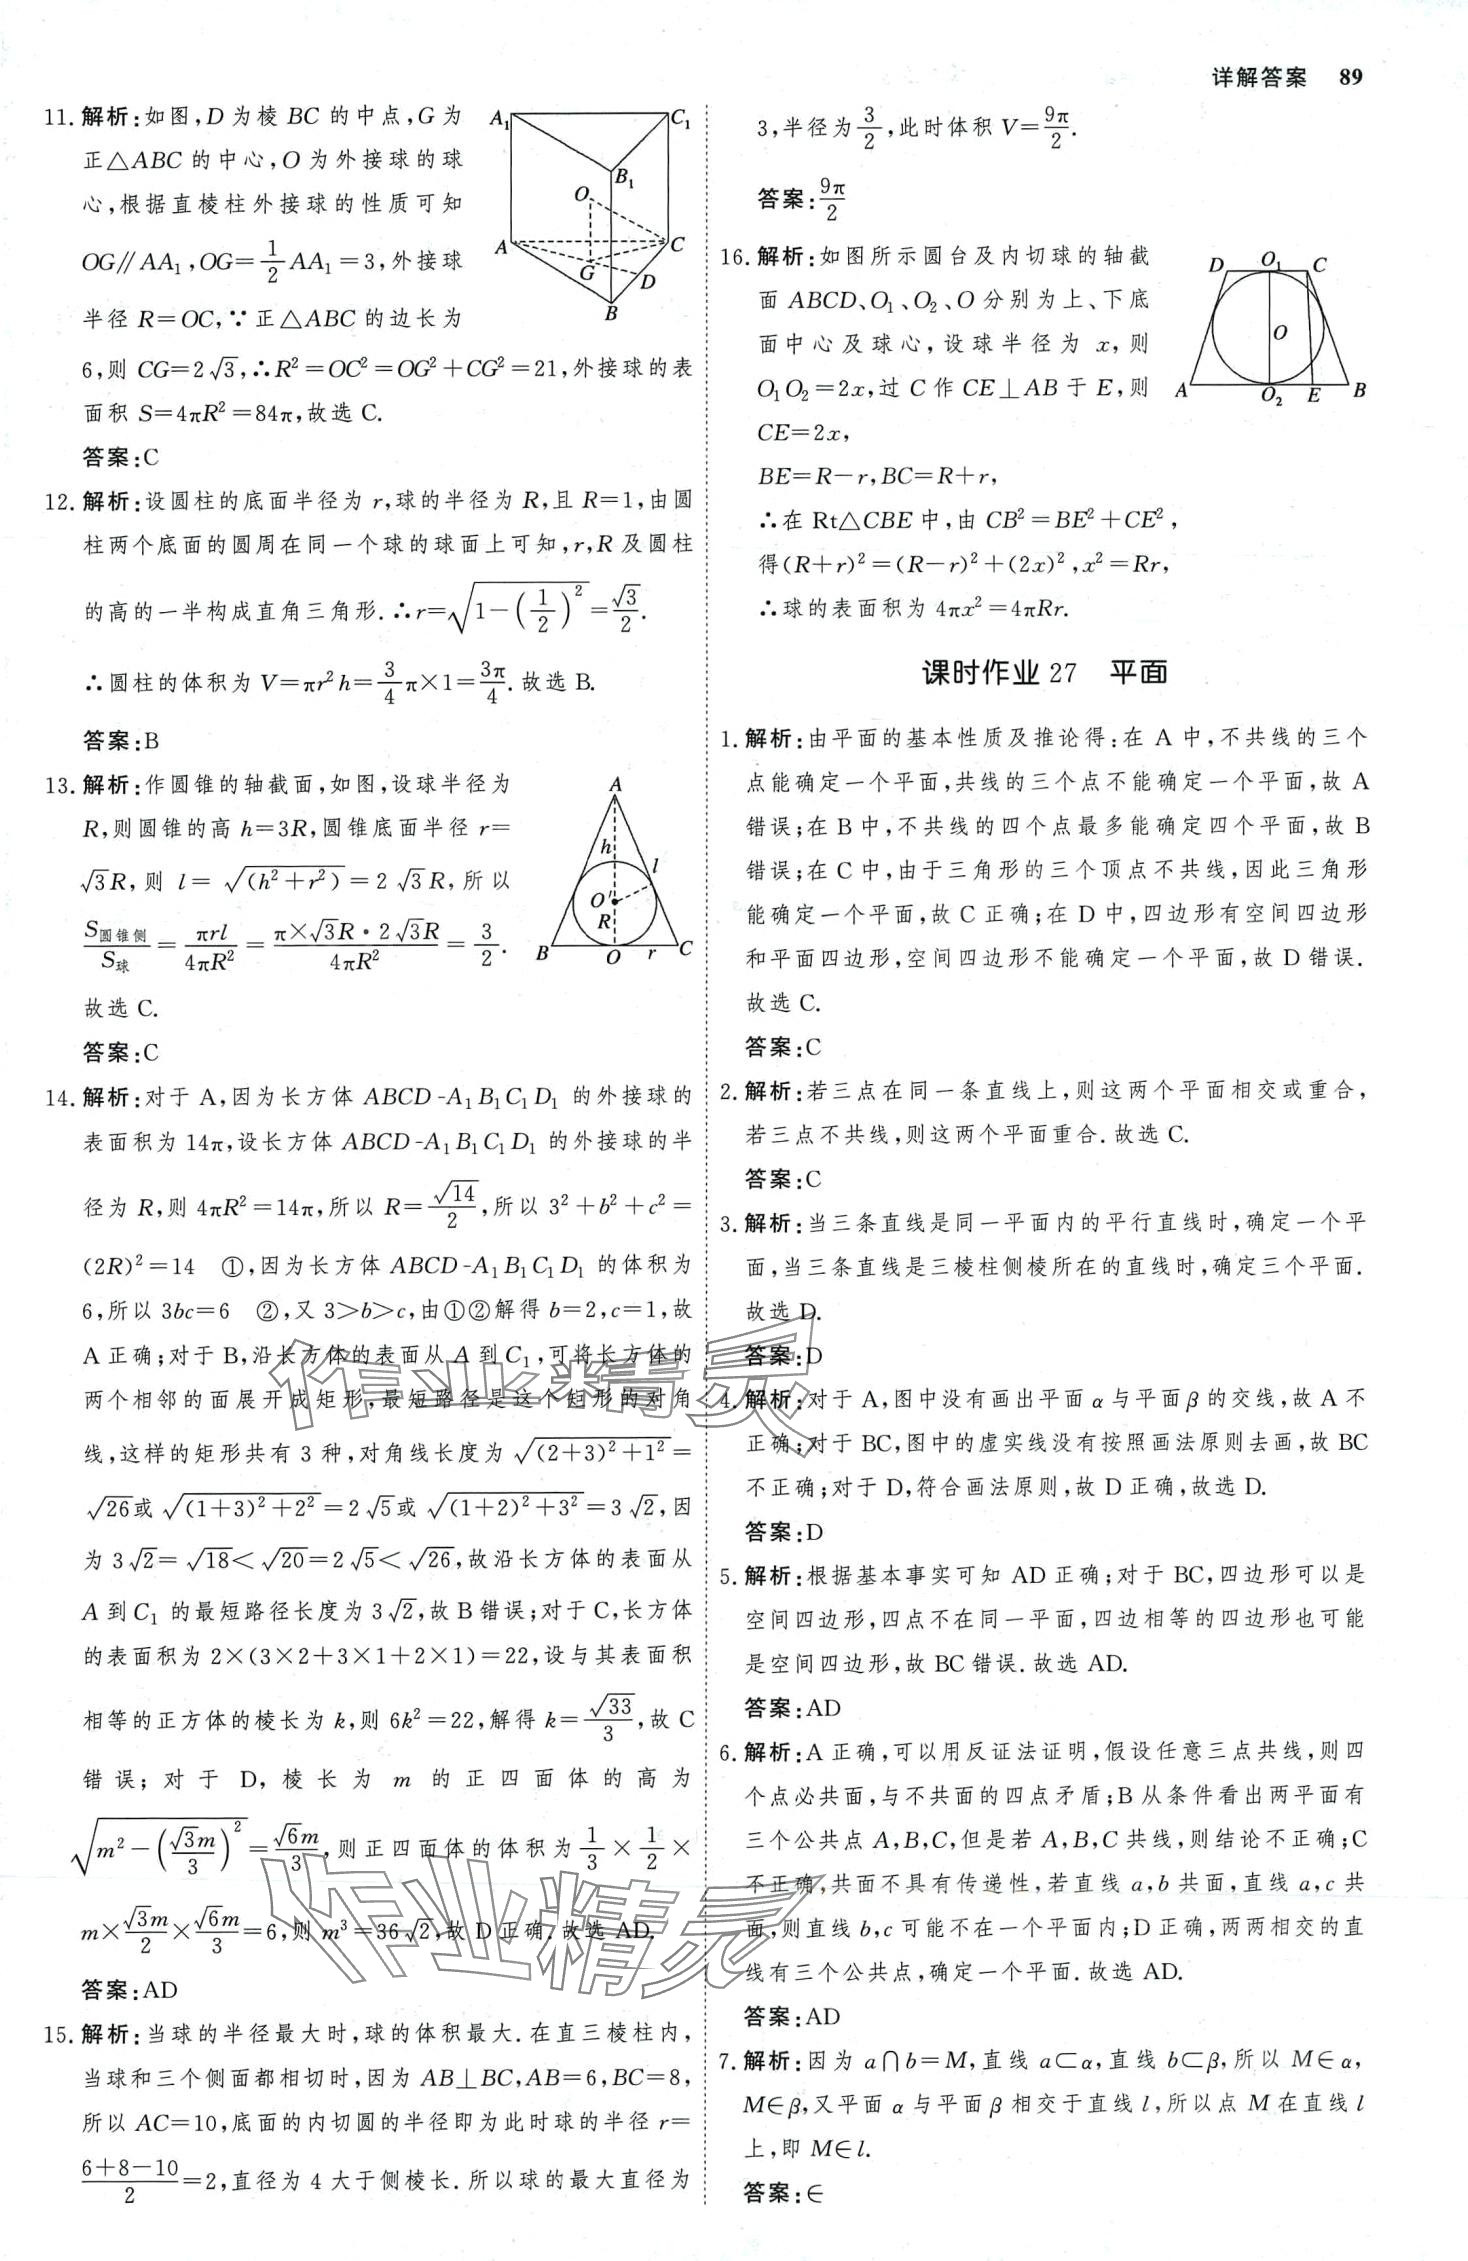 详解答案 89
11. 解析:如图,D 为棱 BC 的中点,G 为
正△ABC 的中心,O 为外接球的球
心,根据直棱柱外接球的性质可知
OG∥AA₁,OG=1/2 AA₁=3,外接球
半径 R=OC,∵正△ABC 的边长为
6,则 CG=2√3,∴R²=OC²=OG²+CG²=21,外接球的表
面积 S=4πR²=84π,故选 C.
答案:C
A₁ C₁ B₁ O A C G D B
12. 解析:设圆柱的底面半径为 r,球的半径为 R,且 R=1,由圆
柱两个底面的圆周在同一个球的球面上可知,r,R 及圆柱
的高的一半构成直角三角形.∴r=√(1-(1/2)²)=√3/2.
∴圆柱的体积为 V=πr²h=3/4 π×1=3π/4.故选 B.
答案:B
13. 解析:作圆锥的轴截面,如图,设球半径为
R,则圆锥的高 h=3R,圆锥底面半径 r=
√3R,则 l=√(h²+r²)=2√3R,所以
S圆锥侧/S球=πrl/4πR²=π×√3R·2√3R/4πR²=3/2.
故选 C.
答案:C
A h l O′ R B O r C
14. 解析:对于 A,因为长方体 ABCD-A₁B₁C₁D₁ 的外接球的
表面积为 14π,设长方体 ABCD-A₁B₁C₁D₁ 的外接球的半
径为 R,则 4πR²=14π,所以 R=√14/2,所以 3²+b²+c²=
(2R)²=14 ①,因为长方体 ABCD-A₁B₁C₁D₁ 的体积为
6,所以 3bc=6 ②,又 3>b>c,由①②解得 b=2,c=1,故
A 正确;对于 B,沿长方体的表面从 A 到 C₁,可将长方体的
两个相邻的面展开成矩形,最短路径是这个矩形的对角
线,这样的矩形共有 3 种,对角线长度为√((2+3)²+1²)=
√26或√((1+3)²+2²)=2√5或√((1+2)²+3²)=3√2,因
为 3√2=√18<√20=2√5<√26,故沿长方体的表面从
A 到 C₁ 的最短路径长度为 3√2,故 B 错误;对于 C,长方体
的表面积为 2×(3×2+3×1+2×1)=22,设与其表面积
相等的正方体的棱长为 k,则 6k²=22,解得 k=√33/3,故 C
错误;对于 D,棱长为 m 的正四面体的高为
√(m²-(√3m/3)²)=√6m/3,则正四面体的体积为1/3×1/2×
m×√3m/2×√6m/3=6,则 m³=36√2,故 D 正确.故选 AD.
答案:AD
15. 解析:当球的半径最大时,球的体积最大.在直三棱柱内,
当球和三个侧面都相切时,因为 AB⊥BC,AB=6,BC=8,
所以 AC=10,底面的内切圆的半径即为此时球的半径 r=
(6+8-10)/2=2,直径为 4 大于侧棱长.所以球的最大直径为
3,半径为3/2,此时体积 V=9π/2.
答案:9π/2
16. 解析:如图所示圆台及内切球的轴截
面 ABCD、O₁、O₂、O 分别为上、下底
面中心及球心,设球半径为 x,则
O₁O₂=2x,过 C 作 CE⊥AB 于 E,则
CE=2x,
BE=R-r,BC=R+r,
∴在 Rt△CBE 中,由 CB²=BE²+CE²,
得(R+r)²=(R-r)²+(2x)²,x²=Rr,
∴球的表面积为 4πx²=4πRr.
D O₁ C O A O₂ E B
课时作业 27 平面
1. 解析:由平面的基本性质及推论得:在 A 中,不共线的三个
点能确定一个平面,共线的三个点不能确定一个平面,故 A
错误;在 B 中,不共线的四个点最多能确定四个平面,故 B
错误;在 C 中,由于三角形的三个顶点不共线,因此三角形
能确定一个平面,故 C 正确;在 D 中,四边形有空间四边形
和平面四边形,空间四边形不能确定一个平面,故 D 错误.
故选 C.
答案:C
2. 解析:若三点在同一条直线上,则这两个平面相交或重合,
若三点不共线,则这两个平面重合.故选 C.
答案:C
3. 解析:当三条直线是同一平面内的平行直线时,确定一个平
面,当三条直线是三棱柱侧棱所在的直线时,确定三个平面.
故选 D.
答案:D
4. 解析:对于 A,图中没有画出平面 α 与平面 β 的交线,故 A 不
正确;对于 BC,图中的虚实线没有按照画法原则去画,故 BC
不正确;对于 D,符合画法原则,故 D 正确,故选 D.
答案:D
5. 解析:根据基本事实可知 AD 正确;对于 BC,四边形可以是
空间四边形,四点不在同一平面,四边相等的四边形也可能
是空间四边形,故 BC 错误.故选 AD.
答案:AD
6. 解析:A 正确,可以用反证法证明,假设任意三点共线,则四
个点必共面,与不共面的四点矛盾;B 从条件看出两平面有
三个公共点 A,B,C,但是若 A,B,C 共线,则结论不正确;C
不正确,共面不具有传递性,若直线 a,b 共面,直线 a,c 共
面,则直线 b,c 可能不在一个平面内;D 正确,两两相交的直
线有三个公共点,确定一个平面.故选 AD.
答案:AD
7. 解析:因为 a∩b=M,直线 a⊂α,直线 b⊂β,所以 M∈α,
M∈β,又平面 α 与平面 β 相交于直线 l,所以点 M 在直线 l
上,即 M∈l.
答案:∈
作业精灵
作业精灵